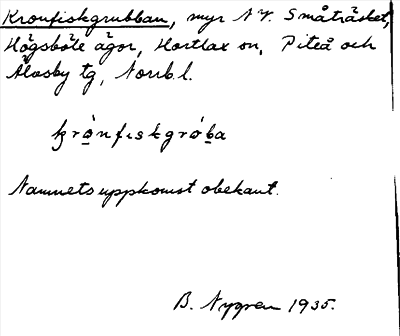 Kronfiskgrubban, myr N V. Småträsket,
Högsböle ägor, Hortlax sn, Piteå och
Älvsby tg, Norrb. l.
krònfıskgróba
Namnets uppkomst obekant.
B. Nygren 1935.